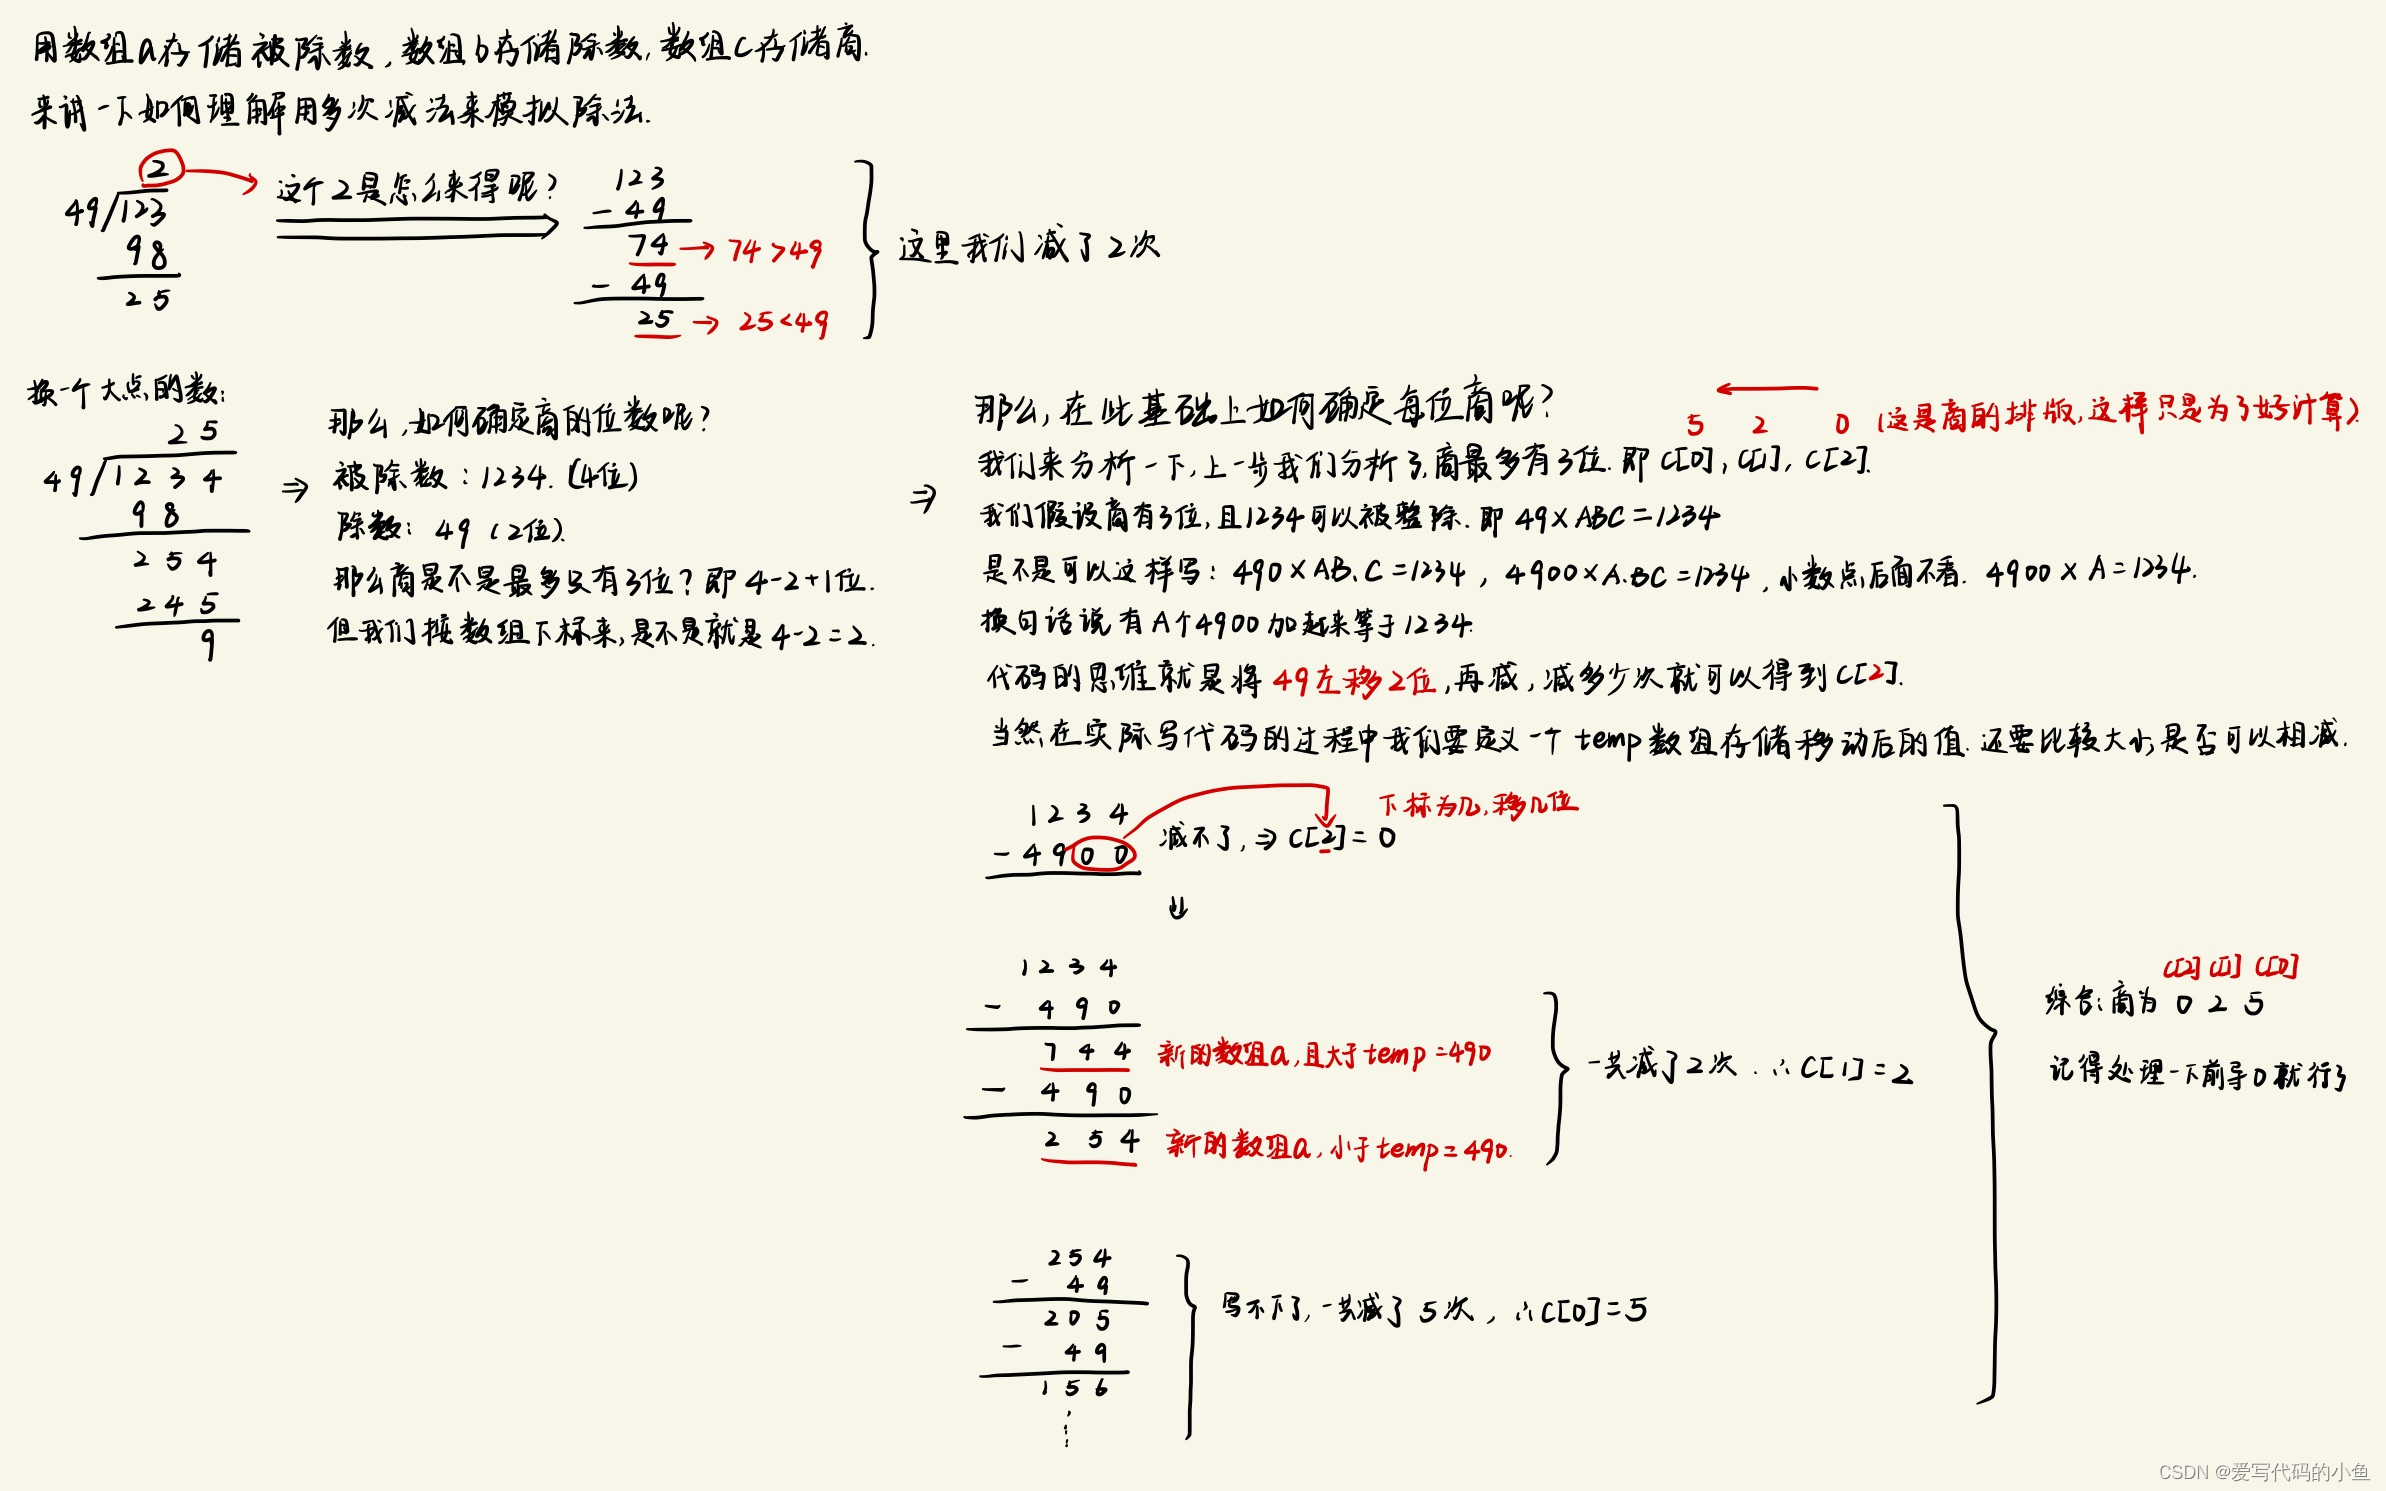 用数组a存储被除数,数组b存储除数,数组c存储商.
来讲一下如何理解用多次减法来模拟除法.
2
49/123
98
25
这个2是怎么来得呢?
123
- 49
74 → 74>49
- 49
25 → 25<49
这里我们减了2次
换一个大点的数:
25
49/1234
98
254
245
9
⇒
那么,如何确定商的位数呢?
被除数:1234.(4位)
除数:49(2位).
那么商是不是最多只有3位?即4-2+1位.
但我们按数组下标来,是不是就是4-2=2.
⇒
那么,在此基础上如何确定每位商呢?
5 2 0 (这是商的排版,这样只是为了好计算).
我们来分析一下,上一步我们分析了,商最多有3位.即C[0],C[1],C[2].
我们假设商有3位,且1234可以被整除.即49×ABC=1234
是不是可以这样写:490×AB.C=1234,4900×A.BC=1234,小数点后面不看.4900×A=1234.
换句话说有A个4900加起来等于1234.
代码的思维就是将49左移2位,再减,减多少次就可以得到C[2].
当然在实际写代码的过程中我们要定义一个temp数组存储移动后的值.还要比较大小,是否可以相减.
1234
- 4900
减不了,⇒C[2]=0
下标为几,移几位
⇓
1234
- 490
744 新的数组a,且大于temp=490
- 490
254 新的数组a,小于temp=490.
一共减了2次.∴C[1]=2
254
- 49
205
- 49
156
⋮
写不下了,一共减了5次,∴C[0]=5
C[2] C[1] C[0]
综合:商为 0 2 5
记得处理一下前导0就行了
CSDN @爱写代码的小鱼